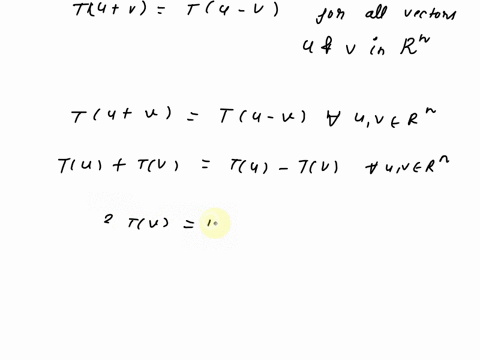 T(u+v) = T(u-v) for all vectors
u & v in Rⁿ
T(u+v) = T(u-v) ∀ u,v ∈ Rⁿ
T(u) + T(v) = T(u) - T(v) ∀ u,v ∈ Rⁿ
2 T(v) =